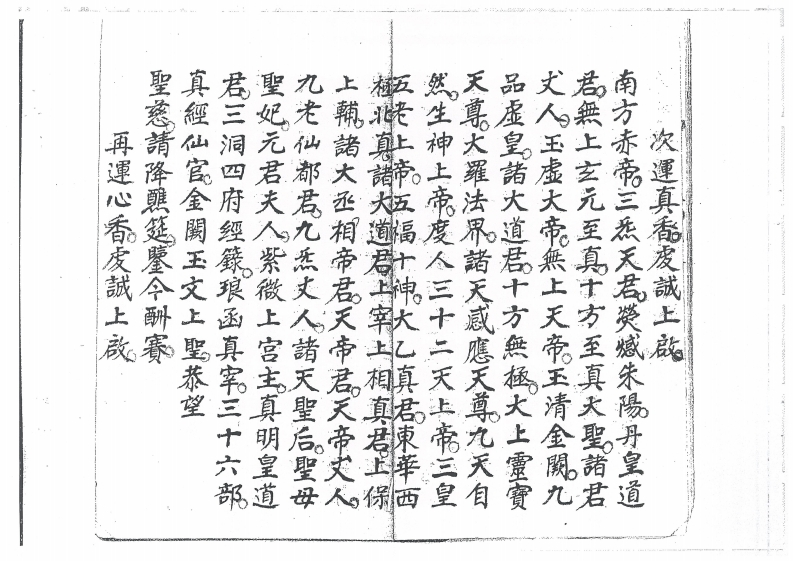 次運真香。虔誠上啟。
南方赤帝。三炁天君。熒惑朱陽。丹皇道
君。無上玄元至真。十方至真大聖。諸君
丈人。玉虛大帝。無上天帝。玉清金闕。九
品虛皇。諸大道君。十方無極。大上靈寶
天尊。大羅法界。諸天感應天尊。九天自
然。生神上帝。度人三十二天上帝。三皇
五老上帝。五福十神。大乙真君。東華西
極北真諸大道君。上宰上相真君。上保
上輔。諸大丞相帝君。天帝君。天帝丈人。
九老仙都君。九炁丈人。諸天聖后。聖母
聖妃。元君夫人。紫微上宮主。真明皇道
君。三洞四府經籙。琅函真宰。三十六部。
真經仙官。金闕玉文上聖。恭望
聖慈。請降醮筵。鑒今酬賽。
再運心香。虔誠上啟。